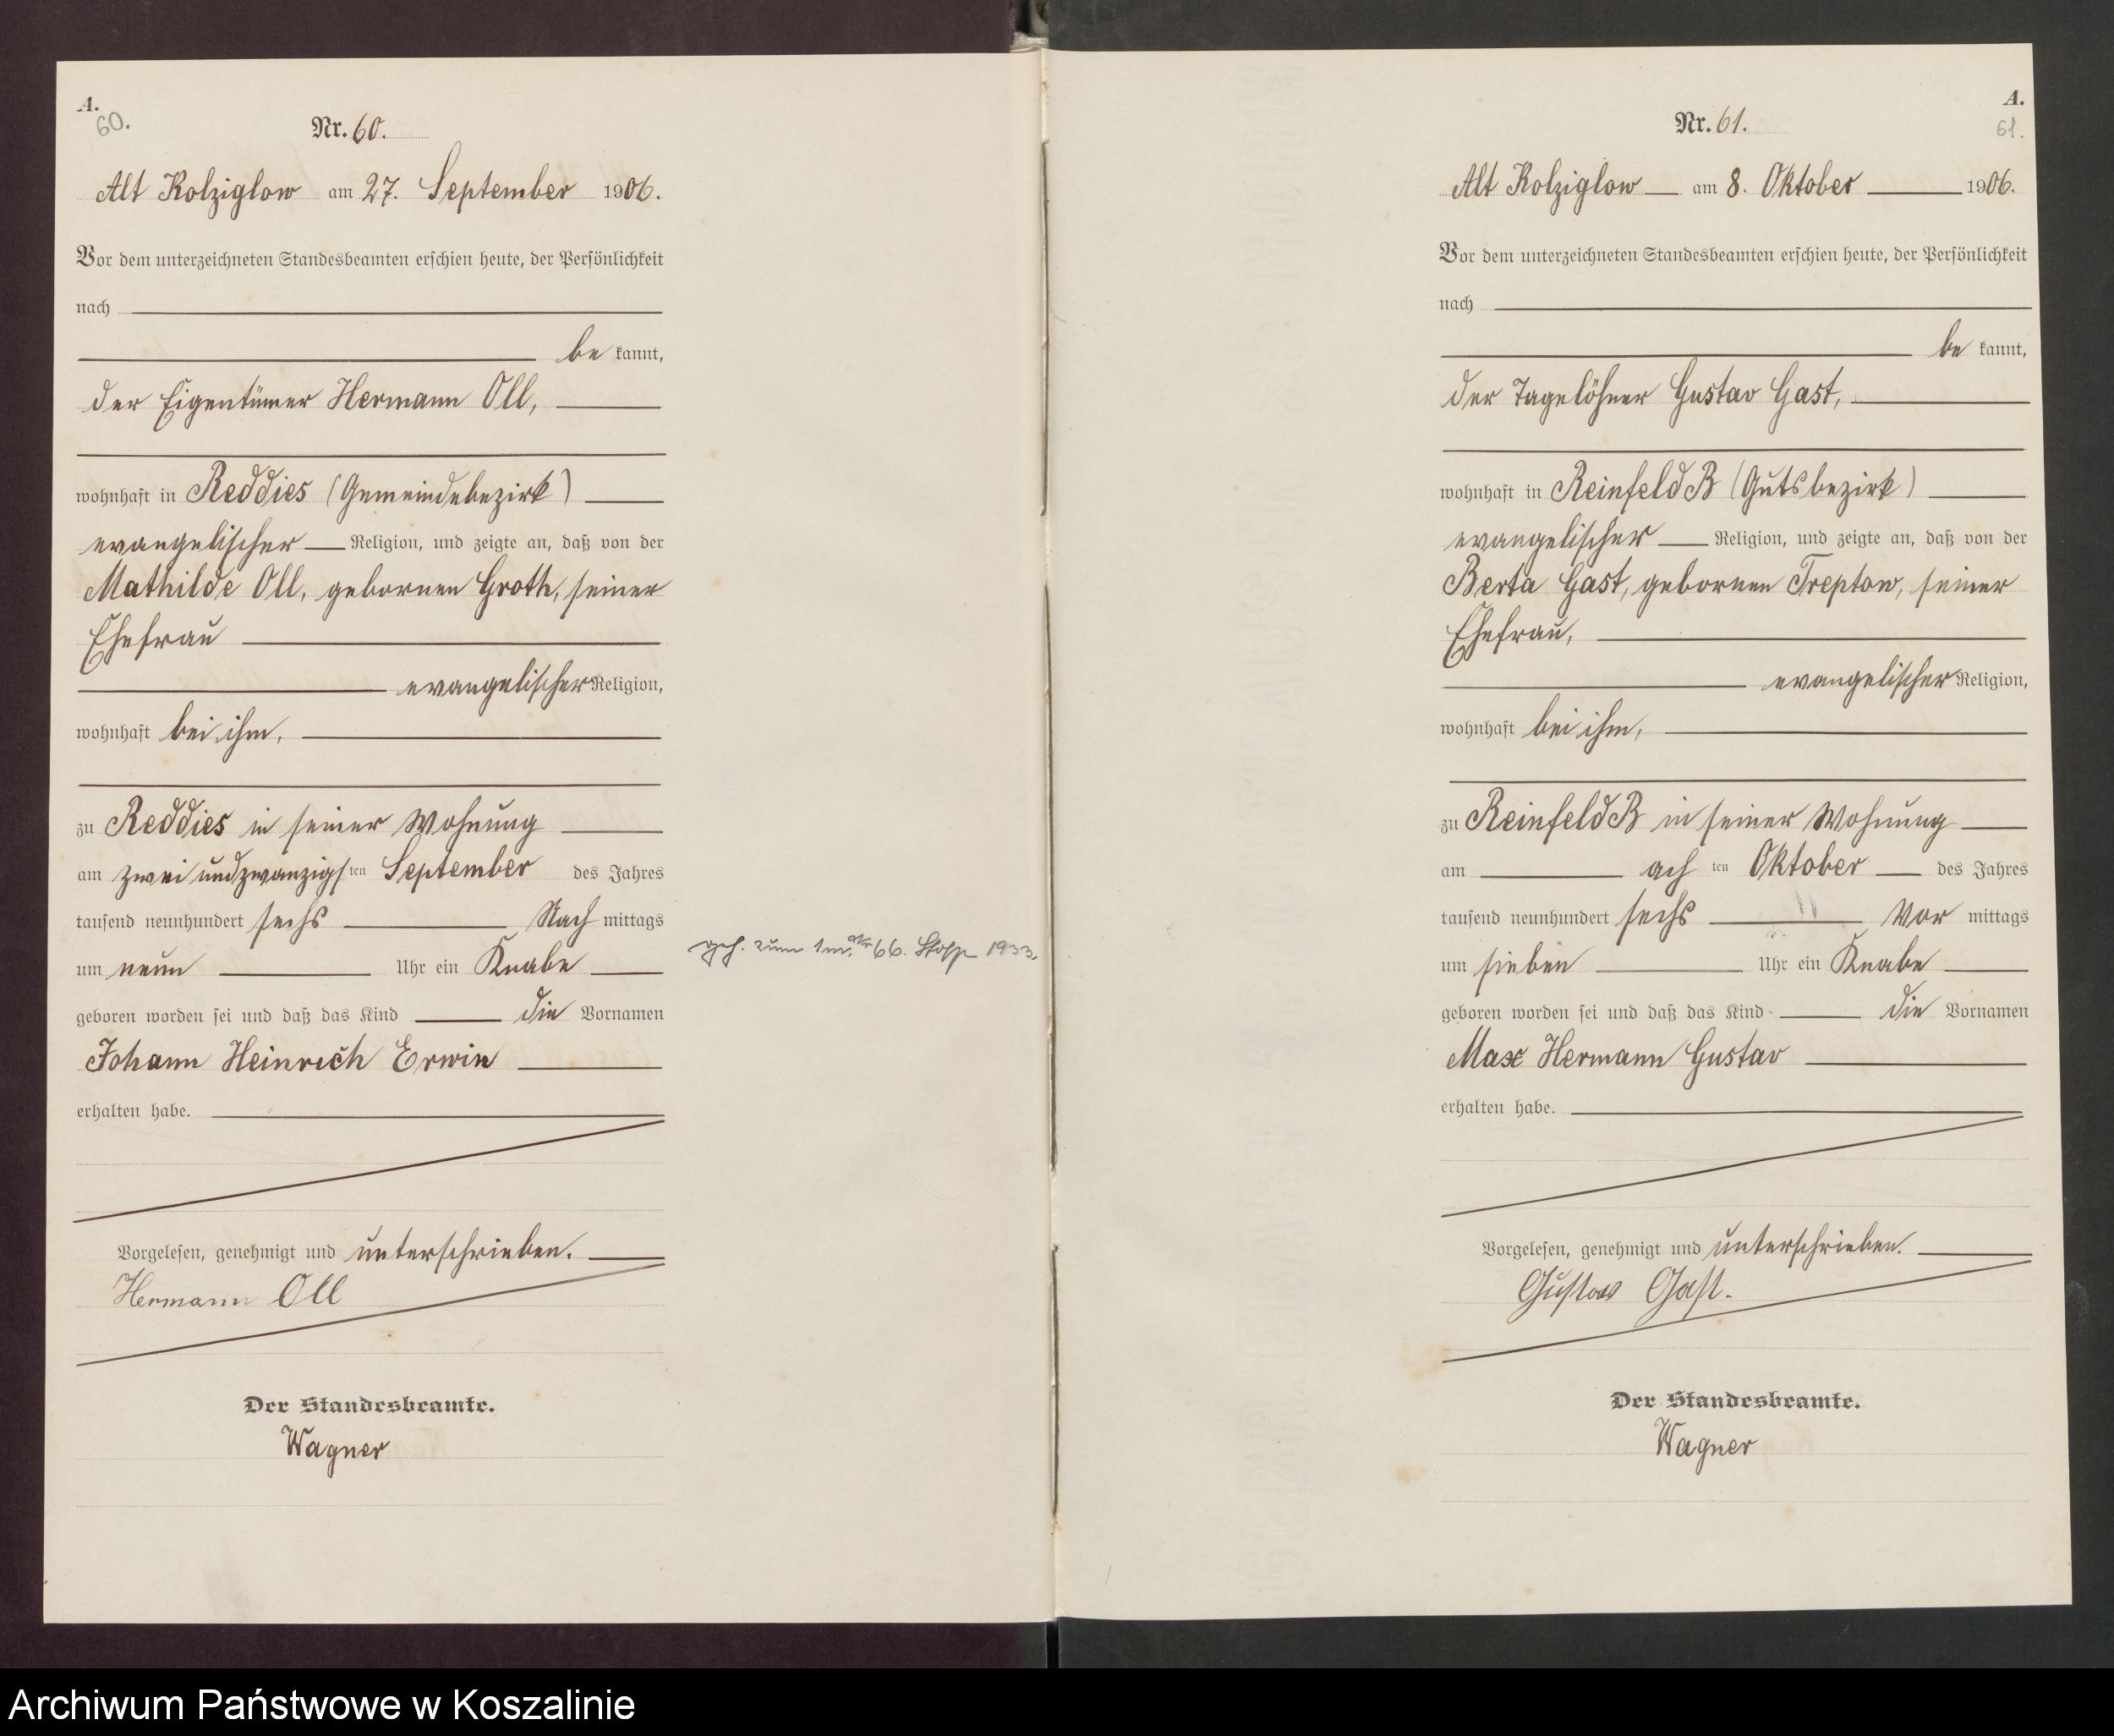 A.
60.
Nr. 60.
Alt Kolziglow am 27. September 1906.
Vor dem unterzeichneten Standesbeamten erschien heute, der Persönlichkeit
nach
be kannt,
der Eigentümer Hermann Oll,
wohnhaft in Reddies (Gemeindebezirk)
evangelischer Religion, und zeigte an, daß von der
Mathilde Oll, gebornen Groth, seiner
Ehefrau
evangelischer Religion,
wohnhaft bei ihm,
zu Reddies in seiner Wohnung
am zwei und zwanzigsten September des Jahres
tausend neunhundert sechs Nach mittags
um neun Uhr ein Knabe
geboren worden sei und daß das Kind die Vornamen
Johann Heinrich Erwin
erhalten habe.
Vorgelesen, genehmigt und unterschrieben.
Hermann Oll
Der Standesbeamte.
Wagner
geh. zum 1 m. 66. Stolp 1933.
A.
61.
Nr. 61.
Alt Kolziglow am 8. Oktober 1906.
Vor dem unterzeichneten Standesbeamten erschien heute, der Persönlichkeit
nach
be kannt,
der Tagelöhner Gustav Gast,
wohnhaft in Reinfeld B (Gutsbezirk)
evangelischer Religion, und zeigte an, daß von der
Berta Gast, gebornen Treptow, seiner
Ehefrau,
evangelischer Religion,
wohnhaft bei ihm,
zu Reinfeld B in seiner Wohnung
am ach ten Oktober des Jahres
tausend neunhundert sechs Vor mittags
um sieben Uhr ein Knabe
geboren worden sei und daß das Kind die Vornamen
Max Hermann Gustav
erhalten habe.
Vorgelesen, genehmigt und unterschrieben.
Gustav Gast.
Der Standesbeamte.
Wagner
Archiwum Państwowe w Koszalinie